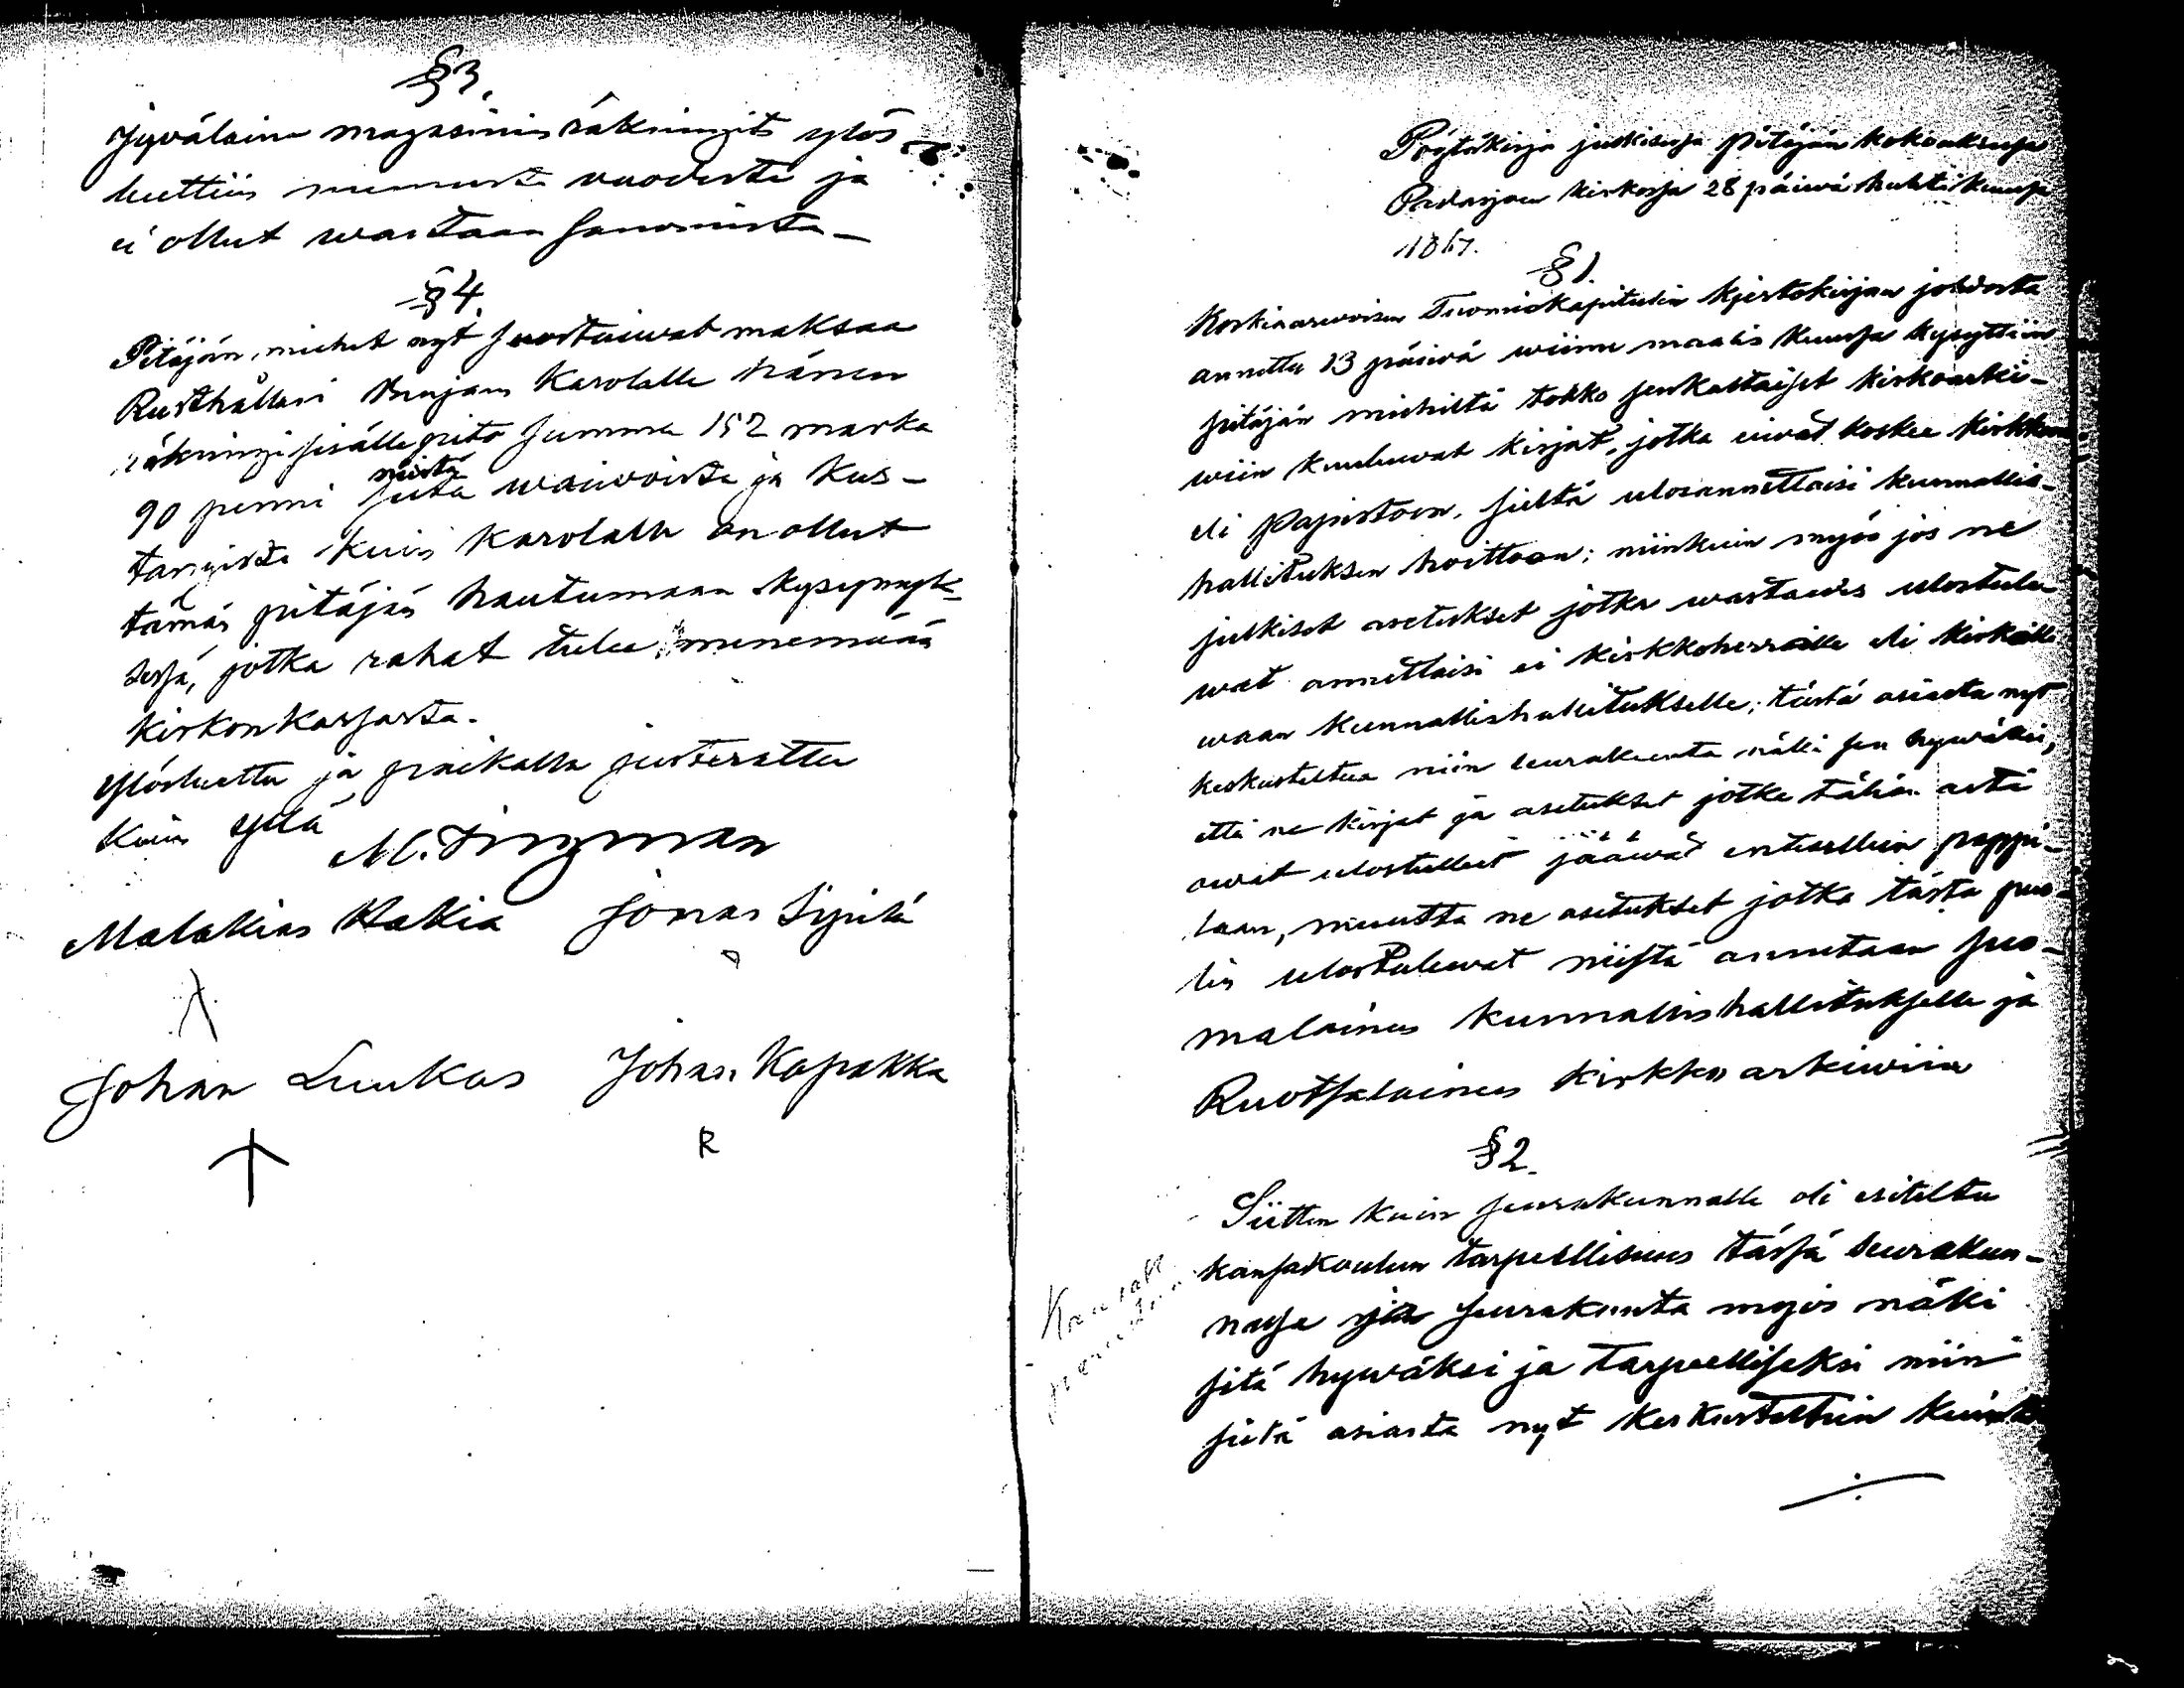 §3.
Jyväläinn magasinin räkningit ylös
luettiin mennestä vuodesta ja
ei ollut wastaan sanomista_
§4.
Pitäjän miehet nyt suostuiwat maksaa
Rusthållari Benjam Karolalle hänen
räkningi sisälle pito summa 152 marka
90 penni siitä waiwoista ja kus-
niistä
tangista kuin Karolalla on ollut
tämän pitäjän hautumaan kysymyk-
sessä, jotka rahat tulee menemään
kirkonkassasta.
Ylösluettu ja paikalla justerattu
kuin yllä
M. Lingman
Malakias Hakia Jonas Sipilä
Johan Luukas Johan Kapakka
R
Pöytäkirja julkisesta pitäjän kokouksesta
Padasjoen kirkossa 28 päiwä huhti kuussa
1867.
§1.
Korkiaarwoisen Tuomiokapitulin kjertokirjan johdosta
annettu 13 päiwä wiime maalis kuussa kysyttiin
pitäjän miehiltä tokko senkaltaiset kirkoarki-
wiin kuuluwat kirjat, jotka eiwät koskee kirkkoon
eli Papistoon, sieltä ulosannettaisi kunnallis-
hallituksen hoittoon; niinkuin myös jos ne
julkiset asetukset jotka wastaudes ulostule-
wat annettaisi ei kirkkoherralle eli kirkolle
waan kunnallishallitukselle; tästä asiasta nyt
keskusteltua niin seurakunta näki sen hywäksi,
että ne kirjat ja asetukset jotka tähän asti
owat ulostulleet jääwät entisellein pappi-
laan, muutta ne asetukset jotka tästä puo-
lin ulostulewat niistä annetaan suo-
malainen kunnallishallitukselle ja
Ruotsalainen kirkko arkiwiin
§2.
Siitten kuin seurakunnalle oli esiteltu
kansakoulun tarpeellisuus tässä seurakun-
nassa ja seurakunta myös näki
sitä hywäksi ja tarpeelliseksi niin
siitä asiasta nyt keskusteltiin kuinka